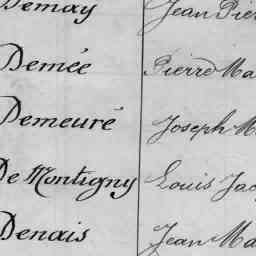 Demay Jean Pier
Demée Pierre Ma
Demeuré Joseph M
De Montigny Louis Jac
Denais Jean Ma